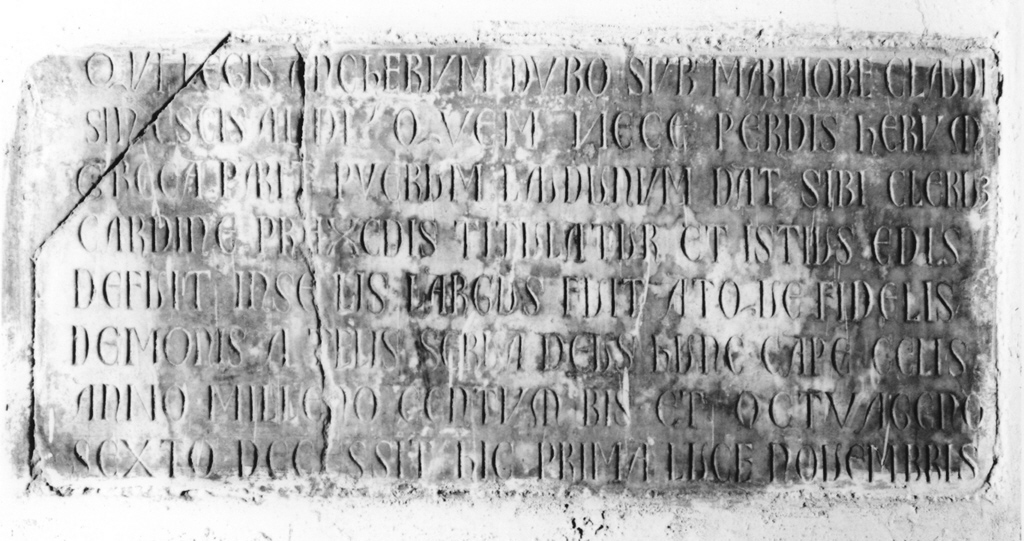 QVI LEGIS ANCHERVM DVRO SVB MARMORE CLAVDI
SI NESCIS AVDI QVEM NECE PERDIS HERVM
TRECA PARIT PVERUM LAUDUNVM DAT SIBI CLERUZ
CARDINE PRAXEDIS TITULATUR ET ISTIUS EDIS
DEFUIT INSE LIS LARGUS FUIT ATQUE FIDELIS
DEMONIS A TELIS SERUA DEUS HUNC CAPE CELIS
ANNO MILLENO CENTVM BIS ET OCTVAGENO
SEXTO DECESSIT HIC PRIMA LUCE NOUEMBRIS